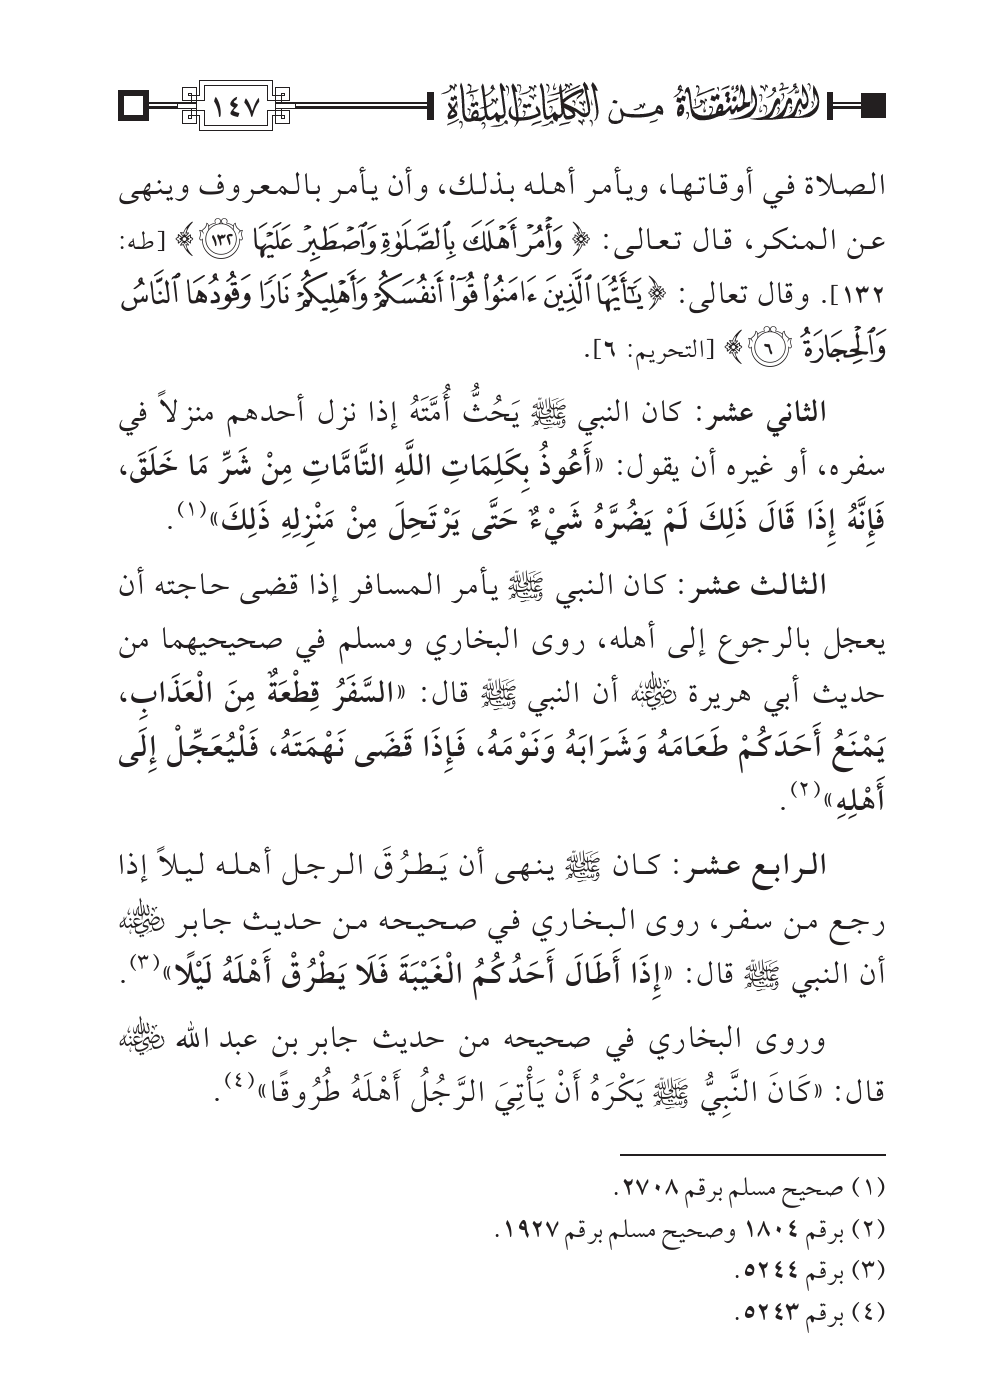 الدرر المنتقاة من الكلمات الملقاة ١٤٧
الصلاة في أوقاتها، ويأمر أهله بذلك، وأن يأمر بالمعروف وينهى
عن المنكر، قال تعالى: ﴿ وَأْمُرْ أَهْلَكَ بِٱلصَّلَوٰةِ وَٱصْطَبِرْ عَلَيْهَا ١٣٢ ﴾ [طه:
١٣٢]. وقال تعالى: ﴿ يَٰٓأَيُّهَا ٱلَّذِينَ ءَامَنُوا۟ قُوٓا۟ أَنفُسَكُمْ وَأَهْلِيكُمْ نَارًا وَقُودُهَا ٱلنَّاسُ
وَٱلْحِجَارَةُ ٦ ﴾ [التحريم: ٦].
الثاني عشر: كان النبي ﷺ يَحُثُّ أُمَّتَهُ إذا نزل أحدهم منزلاً في
سفره، أو غيره أن يقول: «أَعُوذُ بِكَلِمَاتِ اللَّهِ التَّامَّاتِ مِنْ شَرِّ مَا خَلَقَ،
فَإِنَّهُ إِذَا قَالَ ذَلِكَ لَمْ يَضُرَّهُ شَيْءٌ حَتَّى يَرْتَحِلَ مِنْ مَنْزِلِهِ ذَلِكَ»(١).
الثالث عشر: كان النبي ﷺ يأمر المسافر إذا قضى حاجته أن
يعجل بالرجوع إلى أهله، روى البخاري ومسلم في صحيحيهما من
حديث أبي هريرة رضي الله عنه أن النبي ﷺ قال: «السَّفَرُ قِطْعَةٌ مِنَ الْعَذَابِ،
يَمْنَعُ أَحَدَكُمْ طَعَامَهُ وَشَرَابَهُ وَنَوْمَهُ، فَإِذَا قَضَى نَهْمَتَهُ، فَلْيُعَجِّلْ إِلَى
أَهْلِهِ»(٢).
الرابع عشر: كان ﷺ ينهى أن يَطرُقَ الرجل أهله ليلاً إذا
رجع من سفر، روى البخاري في صحيحه من حديث جابر رضي الله عنه
أن النبي ﷺ قال: «إِذَا أَطَالَ أَحَدُكُمُ الْغَيْبَةَ فَلَا يَطْرُقْ أَهْلَهُ لَيْلًا»(٣).
وروى البخاري في صحيحه من حديث جابر بن عبد الله رضي الله عنه
قال: «كَانَ النَّبِيُّ ﷺ يَكْرَهُ أَنْ يَأْتِيَ الرَّجُلُ أَهْلَهُ طُرُوقًا»(٤).
(١) صحيح مسلم برقم ٢٧٠٨.
(٢) برقم ١٨٠٤ وصحيح مسلم برقم ١٩٢٧.
(٣) برقم ٥٢٤٤.
(٤) برقم ٥٢٤٣.